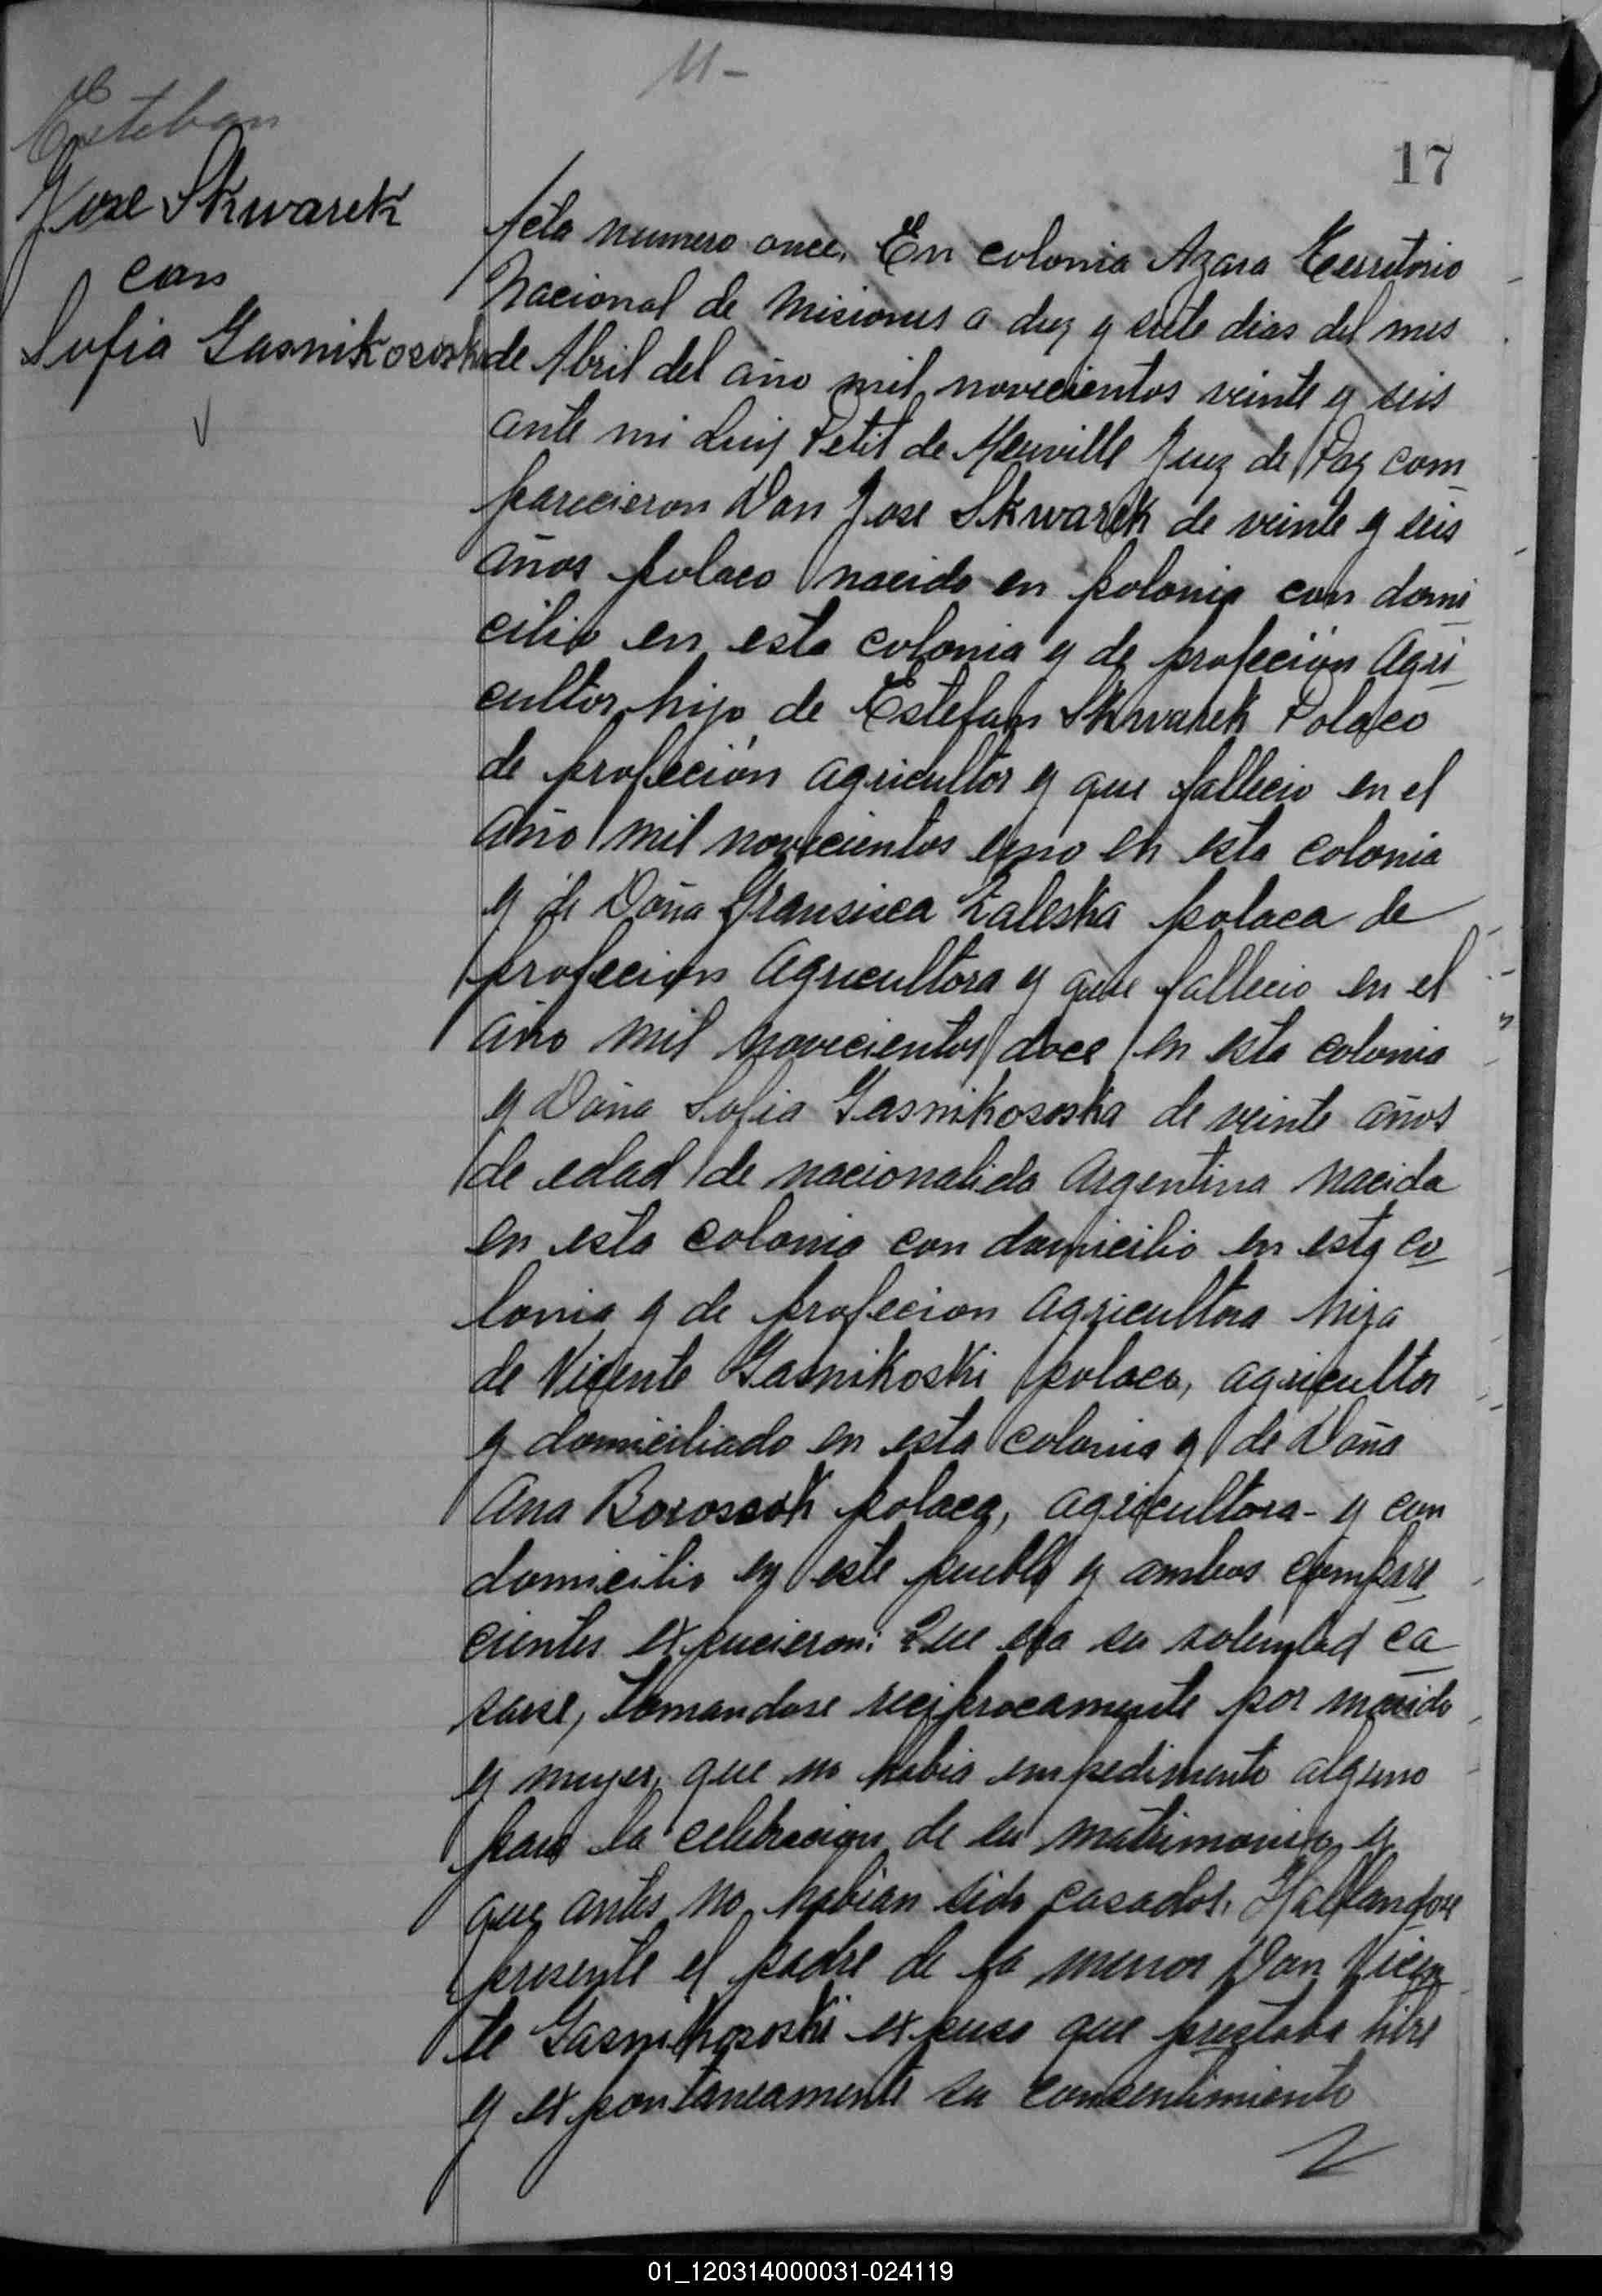 11-
17
Esteban
Jose Skwarek
con
Sofia Gasnikososka
Acta numero once. En colonia Azara Territorio
Nacional de Misiones a diez y siete dias del mes
de Abril del año mil novecientos veinte y seis
ante mi Luis Petit de Meuville Juez de Paz com
parecieron Don Jose Skwarek de veinte y seis
años polaco nacido en polonia con domi
cilio en esta colonia y de profeción Agri
cultor hijo de Estefan Skwarek Polaco
de profeción agricultor y que fallecio en el
año mil novecientos uno en esta colonia
y de Doña Fransisca Zaleska polaca de
profecion Agricultora y que fallecio en el
año mil novecientos doce en esta colonia
y Doña Sofia Gasnikososka de veinte años
de edad de nacionalida Argentina nacida
en esta colonia con domicilio en esta co
lonia y de profecion agricultora hija
de Vicente Gasnikoski polaco, agricultor
y domiciliado en esta colonia y de Doña
Ana Borossok polaca, agricultora- y con
domicilio en este pueblo y ambos compare
cientes expucieron: Que era su voluntad ca
sarse, tomandose reciprocamente por marido
y mujer, que no habia impedimento alguno
para la celebracion de su matrimonio y
que antes no habian sido casados. Hallandose
presente el padre de la menor Don Vicen
te Gasnikososki expuso que prestaba libre
y expontaneamente su consentimiento
01_120314000031-024119